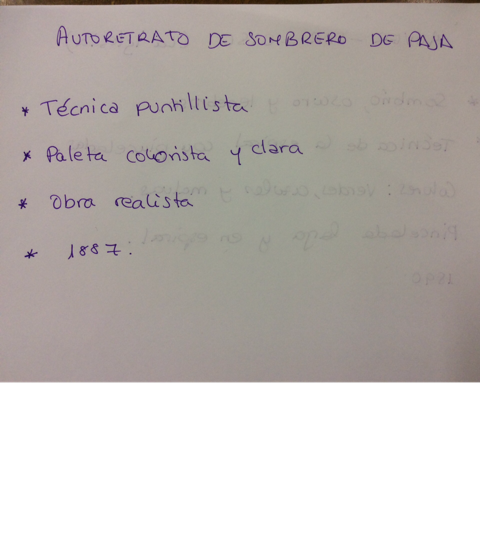 AUTORETRATO DE SOMBRERO DE PAJA
* Técnica puntillista
* Paleta colorista y clara
* Obra realista
* 1887.